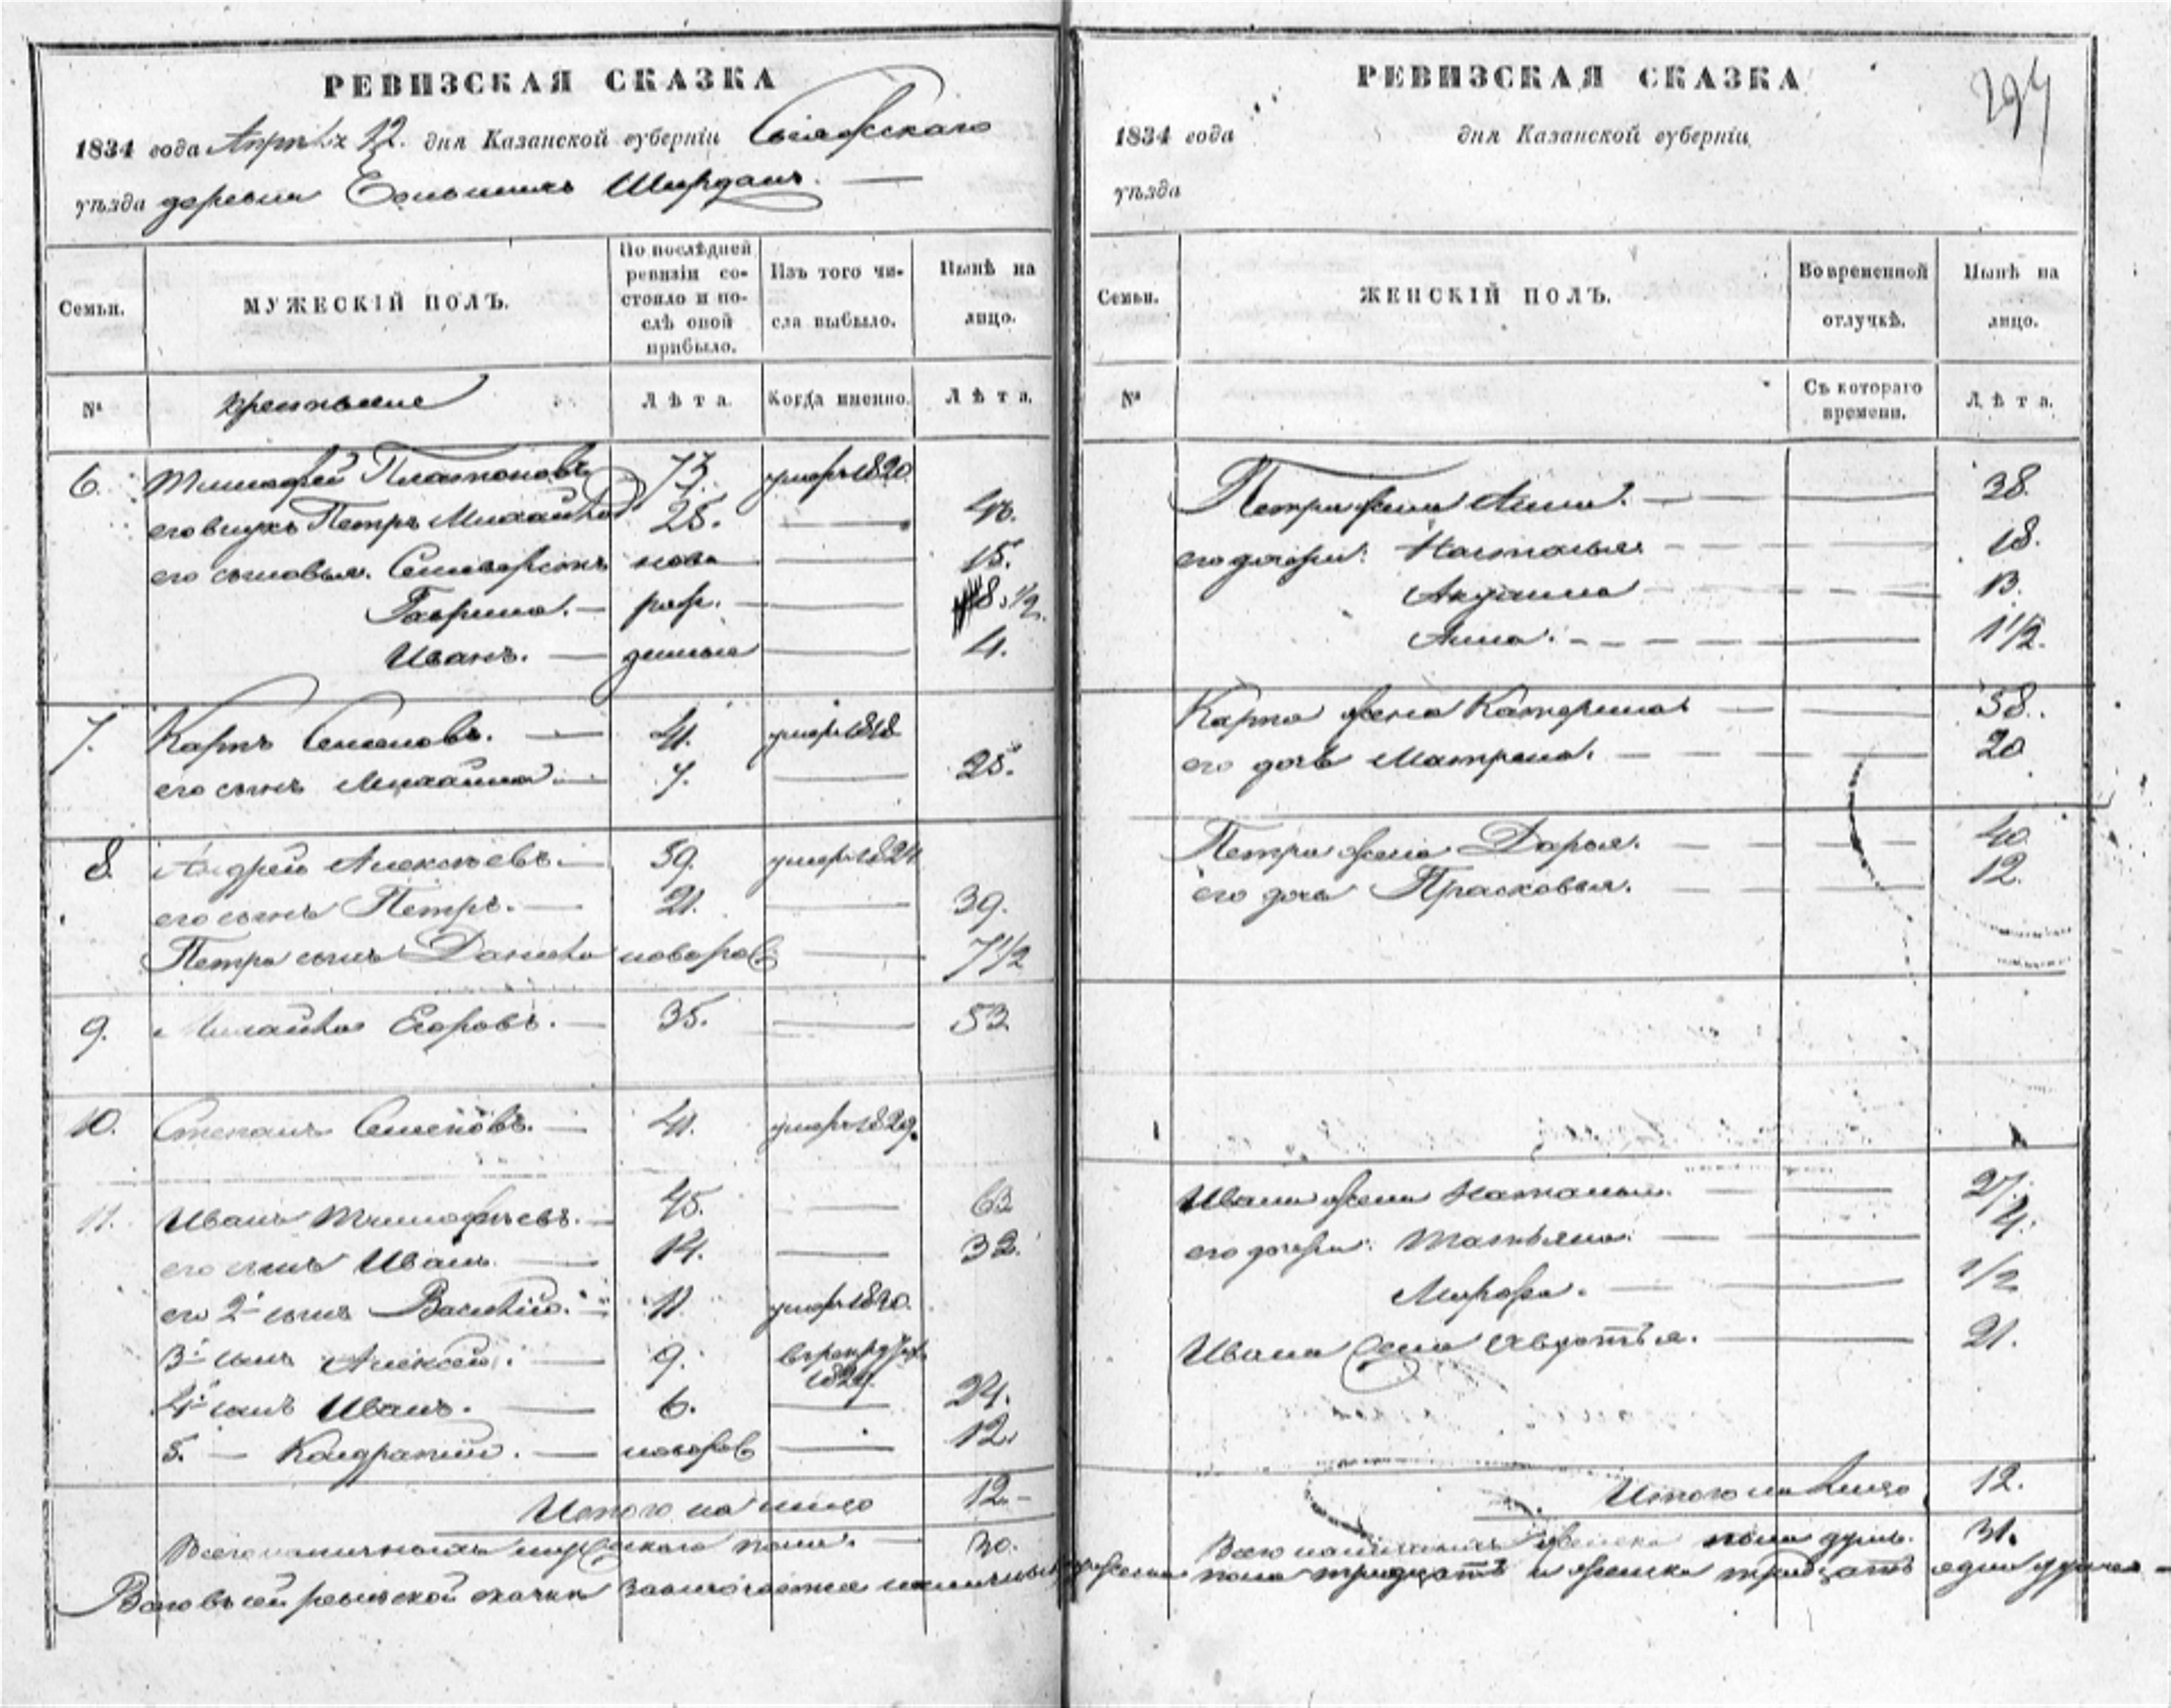 РЕВИЗСКАЯ СКАЗКА
1834 года Апреля 12. дня Казанской губерніи Свіяжскаго
уѣзда деревни Большихъ Ширданъ.
Семьи.
МУЖЕСКІЙ ПОЛЪ.
По послѣдней ревизіи состояло и послѣ оной прибыло.
Изъ того числа выбыло.
Нынѣ на лицо.
№
Лѣта.
Когда именно.
Лѣта.
6. Тимофей Платоновъ 73. умеръ 1820
его внукъ Петръ Михайловъ 25.
его сыновья. Селиверстъ ново 15.
Гаврила. рож. 8. 1/2.
Иванъ. денные 4.
7. Карпъ Семеновъ. 41. умеръ 1818
его сынъ Михайла 7. 25.
8. Андрей Алексѣевъ. 59. умеръ 1824
его сынъ Петръ. 21. 39.
Петра сынъ Данило новорож 7 1/2
9. Михайло Егоровъ. 35. 53.
10. Степанъ Семеновъ. 41. умеръ 1829.
11. Иванъ Тимофѣевъ. 45. 63
его сынъ Иванъ. 14. 32.
его 2й сынъ Василій. 11. умеръ 1820.
3й сынъ Алексей. 9.
4й сынъ Иванъ. 6. 24.
5. Кондратій. новорож 12.
Итого на лицо 12.
Всего наличныхъ мужескаго пола. 30.
РЕВИЗСКАЯ СКАЗКА
1834 года дня Казанской губерніи
уѣзда
Семьи.
ЖЕНСКІЙ ПОЛЪ.
Во временной отлучкѣ.
Нынѣ на лицо.
№
Съ котораго времени.
Лѣта.
Петра жена Анна. 38.
его дочери: Настасья 18.
Акулина 13.
Анна. 1 1/2.
Карпа жена Катерина 58.
его дочь Матрена. 20
Петра жена Дарья. 40
его дочь Прасковья. 12.
Ивана жена Наталья. 27.
его дочери: Татьяна. 4.
1/2
Ивана жена Авдотья. 21.
Итого на лицо 12.
Всего наличныхъ женска пола душъ. 31.
Всего въ сей ревизской сказки заключается наличныхъ мужеска пола тридцать и женска тридцать одна душа